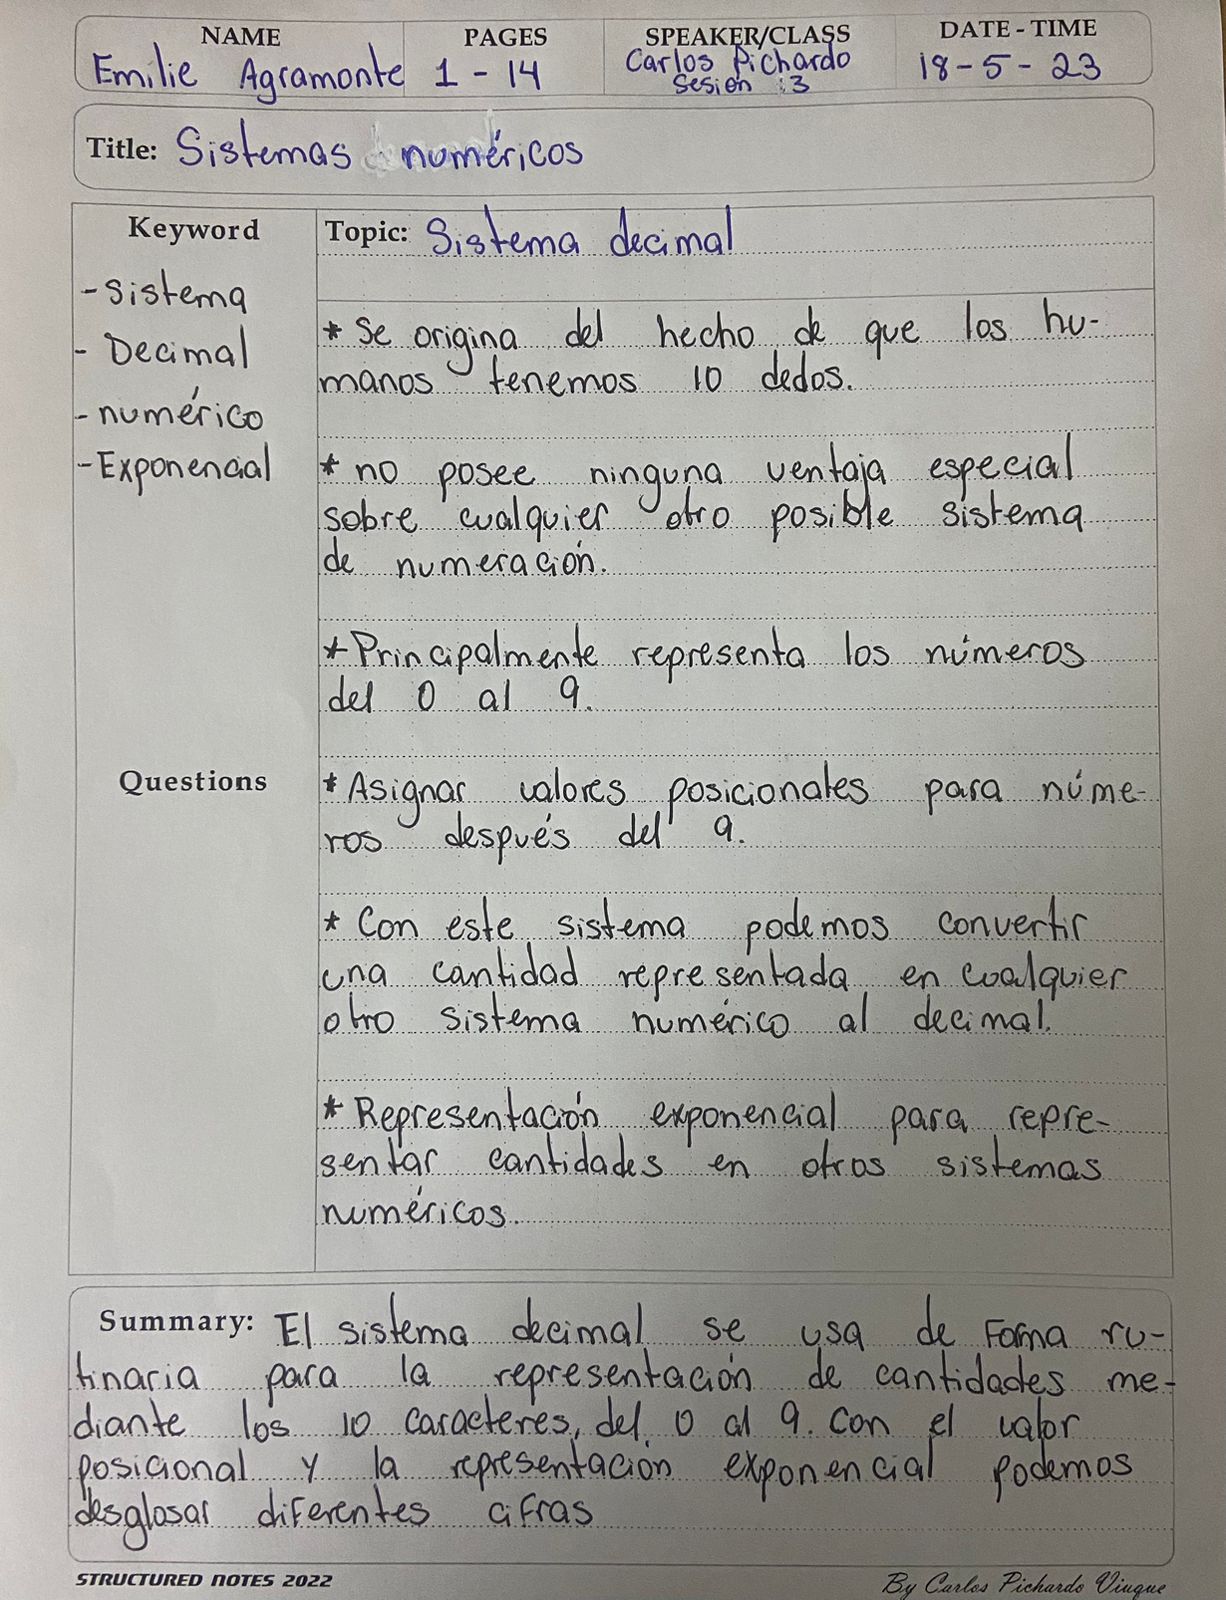 NAME PAGES SPEAKER/CLASS DATE - TIME
Emilie Agramonte 1 - 14 Carlos Pichardo 18-5-23
Sesión :3
Title: Sistemas numéricos
Keyword
- Sistema
- Decimal
- numérico
- Exponencial
Questions
Topic: Sistema decimal
* Se origina del hecho de que los hu-
manos tenemos 10 dedos.
* no posee ninguna ventaja especial
sobre cualquier otro posible sistema
de numeración.
* Principalmente representa los números
del 0 al 9.
* Asignar valores posicionales para núme-
ros después del 9.
* Con este sistema podemos convertir
una cantidad representada en cualquier
otro sistema numérico al decimal.
* Representación exponencial para repre-
sentar cantidades en otros sistemas
numéricos.
Summary: El sistema decimal se usa de Forma ru-
tinaria para la representación de cantidades me-
diante los 10 caracteres, del 0 al 9. Con el valor
posicional y la representación exponencial podemos
desglosar diferentes cifras
STRUCTURED NOTES 2022 By Carlos Pichardo Viuque